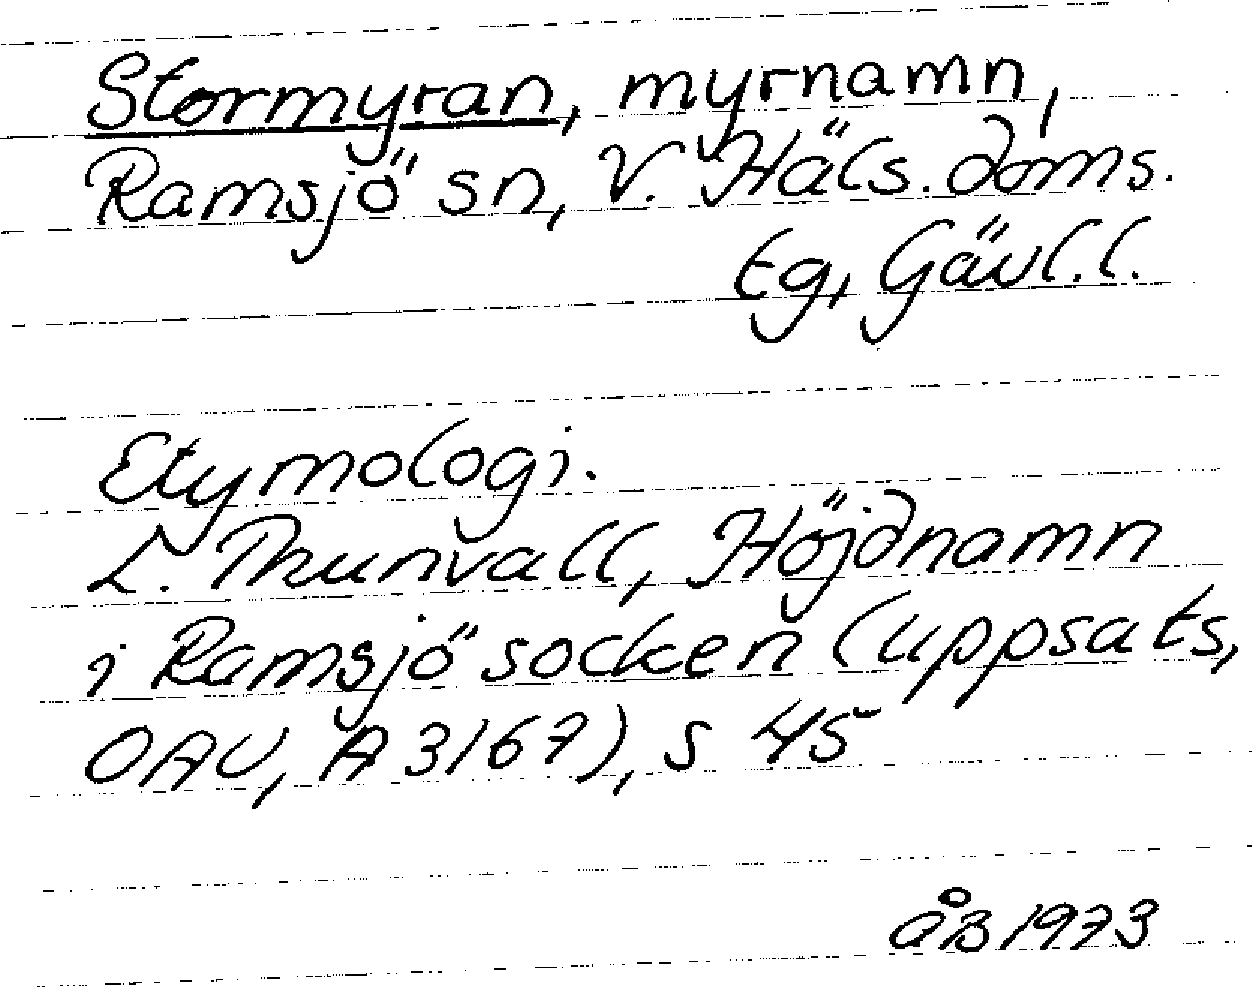 Stormyran, myrnamn,
Ramsjö sn, V. Häls. doms.
tg, Gävl.l.
Etymologi.
L. Thunvall, Höjdnamn
i Ramsjö socken (uppsats,
OAU, A 3167), s 45
åB 1973